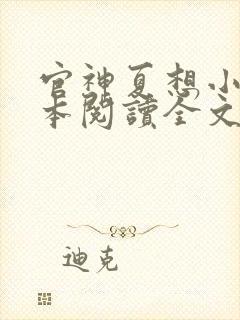 官神夏想小
本閱讀全文
迪克